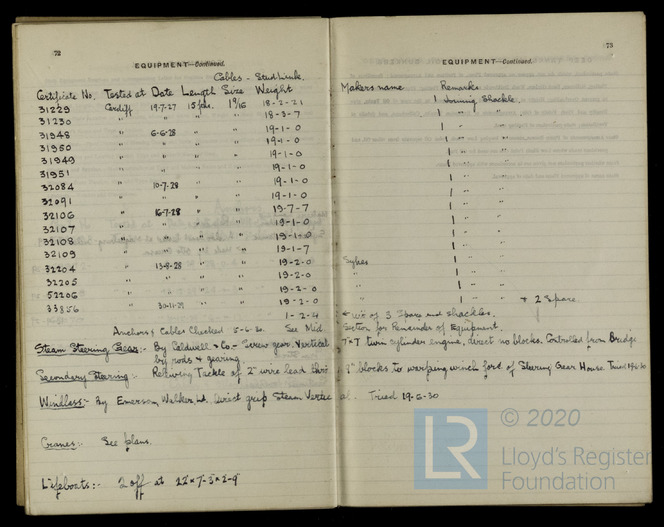 72
EQUIPMENT—Continued.
Cables - Stud Link.
Certificate No. Tested at Date Length Size Weight
31229 Cardiff 19-7-27 15 fms. 1 9/16 18-2-21
31230 " " " " 18-3-7
31948 " 6-6-28 " " 19-1-0
31950 " " " " 19-1-0
31949 " " " " 19-1-0
31951 " " " " 19-1-0
32084 " 10-7-28 " " 19-1-0
32091 " " " " 19-1-0
32106 " 16-7-28 " " 19-7-7
32107 " " " " 19-1-0
32108 " " " " 19-1-0
32109 " " " " 19-1-7
32204 " 13-8-28 " " 19-2-0
32205 " " " " 19-2-0
52206 " " " " 19-2-0
33856 " 30-11-29 " " 19-2-0
1-2-4
Anchors & Cables Checked 5-6-30. See Mid.
Steam Steering Gear:- By Caldwell & Co. - Screw gear. Vertical
by rods & gearing.
Secondary Steering:- Relieving Tackle of 2" wire lead thro
Windlass:- By Emerson, Walker, Ltd. Direct grip Steam Vertec
Cranes:- See plans.
Lifeboats:- 2 off at 22' x 7'-3" x 2'-9"
73
EQUIPMENT—Continued.
Makers name Remarks
1 Joining Shackle.
1 " "
1 " "
1 " "
1 " "
1 " "
1 " "
1 " "
1 " "
1 " "
1 " "
1 " "
Sykes 1 " "
" 1 " "
" 1 " " + 2 Spare
← wt of 3 Spare end shackles.
Section for Remainder of Equipment.
7 x 7 twin cylinder engine, direct no blocks. Controlled from Bridge
9" blocks to warping winch ford. of Steering Gear House Tried
al. Tried 19-5-30
LR
© 2020
Lloyd's Register
Foundation